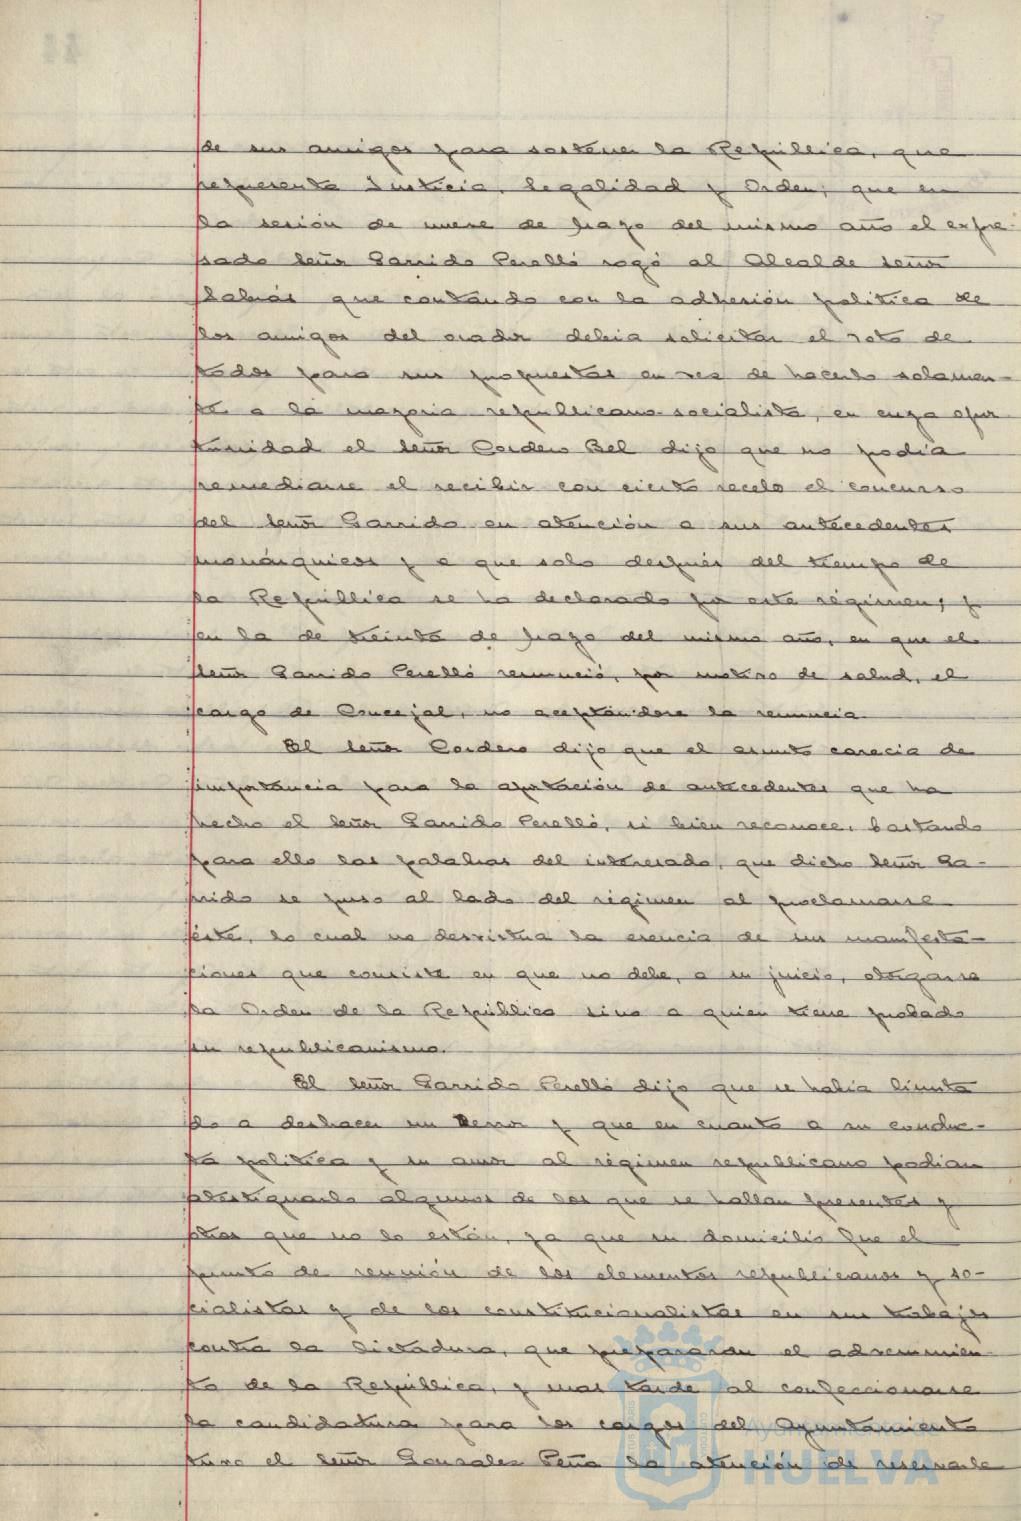 de sus amigos para sostener la República, que
representa Justicia, Legalidad y Orden; que en
la sesión de nueve de Mayo del mismo año el expre-
sado Señor Garrido Perelló rogó al Alcalde Señor
que contando con la adhesión política de
los amigos del orador debia solicitar el voto de
todos para sus propuestas en vez de hacerlo solamen-
te a la mayoria republicano-socialista, en cuya opor
tunidad el Señor Cordero Bel dijo que no podía
remediarse el recibir con cierto recelo el concurso
del Señor Garrido en atención a sus antecedentes
monárquicos y a que solo después del tiempo de
la República se ha declarado por este régimen; y
en la de treinta de Mayo del mismo año, en que el
Señor Garrido Perelló renunció, por motivo de salud, el
cargo de Concejal, no aceptándose la renuncia.
El Señor Cordero dijo que el asunto carecia de
importancia para la aportación de antecedentes que ha
hecho el Señor Garrido Perelló, si bien reconoce, bastando
para ello las palabras del interesado, que dicho Señor Ga-
rrido se puso al lado del régimen al proclamarse
éste, lo cual no desvirtua la esencia de sus manifesta-
ciones que consiste en que no debe, a su juicio, otorgarse
la Orden de la República sino a quien tiene probado
su republicanismo.
El Señor Garrido Perelló dijo que se habia limita
do a deshacer un error y que en cuanto a su conduc-
ta política y su amor al régimen republicano podian
atestiguarlo algunos de los que se hallan presentes y
otros que no lo están, ya que su domicilio fue el
punto de reunión de los elementos republicanos y so-
cialistas y de los constitucionalistas en sus trabajos
contra la dictadura, que prepararan el advenimien-
to de la República, y mas tarde al confeccionarse
la candidatura para los cargos del Ayuntamiento
tuvo el Señor Gonzalez Peña la atención de reservarle
Ayuntamiento
HUELVA